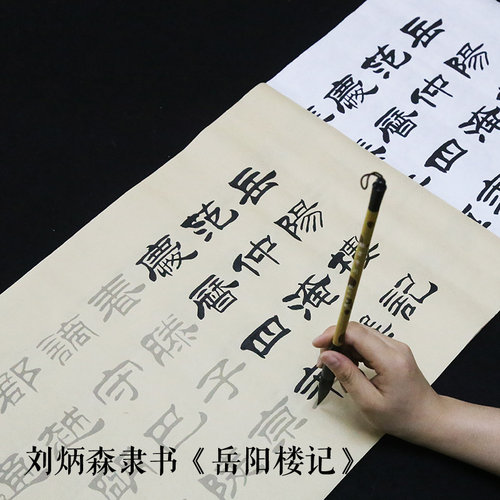 岳陽
范仲淹
慶曆四
岳陽樓記
范仲淹
慶曆四年
春滕子京
謫守巴
郡越
通
刘炳森隶书《岳阳楼记》